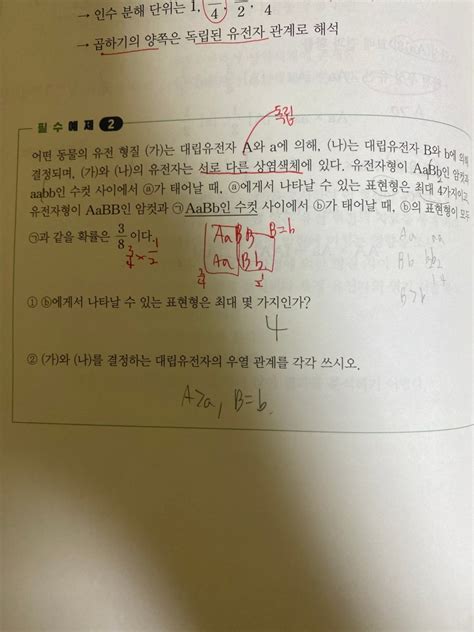 → 인수 분해 단위는 1, 4, 2, 4
→ 곱하기의 양쪽은 독립된 유전자 관계로 해석
필수예제 2
독립
어떤 동물의 유전 형질 (가)는 대립유전자 A와 a에 의해, (나)는 대립유전자 B와 b에 의해
결정되며, (가)와 (나)의 유전자는 서로 다른 상염색체에 있다. 유전자형이 AaBb인 암컷과
aabb인 수컷 사이에서 ⓐ가 태어날 때, ⓐ에게서 나타날 수 있는 표현형은 최대 4가지이고,
유전자형이 AaBB인 암컷과 ㉠ AaBb인 수컷 사이에서 ⓑ가 태어날 때, ⓑ의 표현형이 모두
㉠과 같을 확률은 3/8 이다.
3/4 × 1/2
AaBB B=b
AaBb
3/4 1/2
Aa aa
Bb bb
B>b
① ⓑ에게서 나타날 수 있는 표현형은 최대 몇 가지인가?
4
② (가)와 (나)를 결정하는 대립유전자의 우열 관계를 각각 쓰시오.
A>a, B=b.